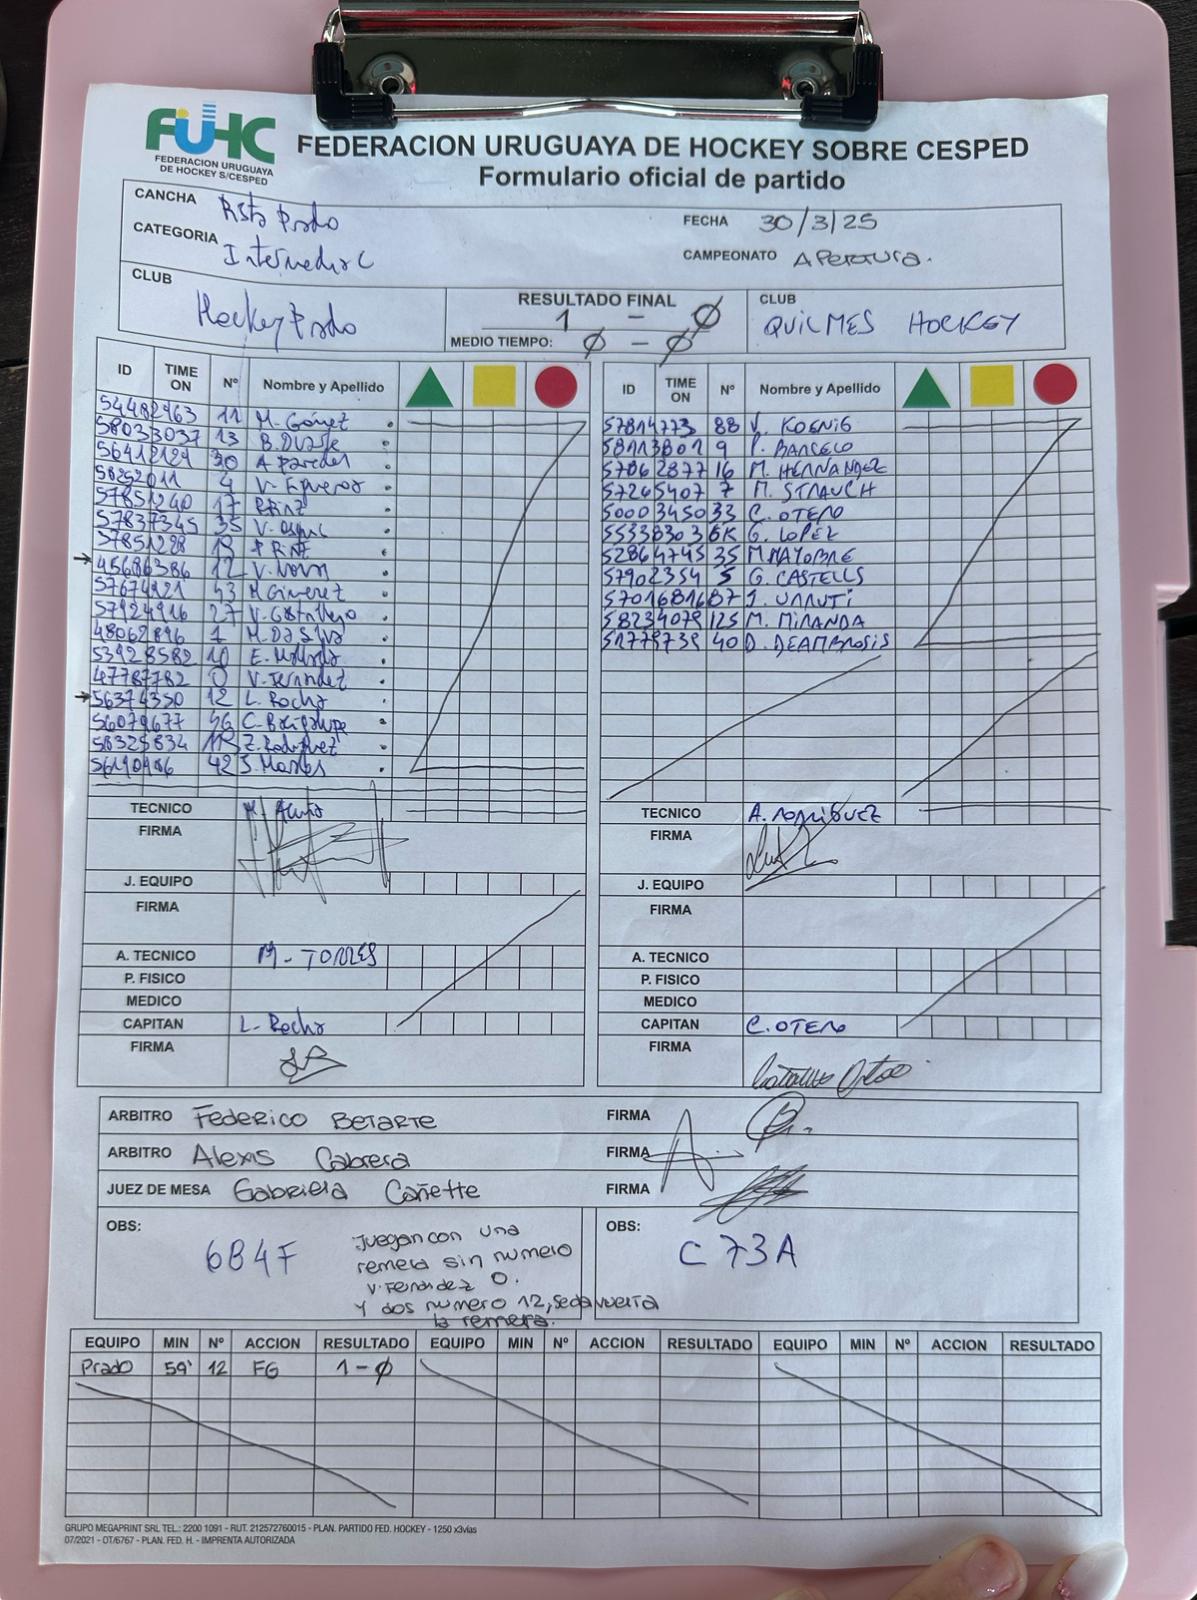 FUHC
FEDERACION URUGUAYA
DE HOCKEY S/CESPED
FEDERACION URUGUAYA DE HOCKEY SOBRE CESPED
Formulario oficial de partido
CANCHA Prado
FECHA 30/3/25
CATEGORIA Intermedia C
CAMPEONATO APERTURA.
CLUB Hockey Prado
RESULTADO FINAL 1 - Ø
MEDIO TIEMPO: Ø - Ø
CLUB QUILMES HOCKEY
ID TIME ON Nº Nombre y Apellido
54482963 11 M. Gómez
58033037 13 B. Duarte
56412129 30 A Paredes
58252011 4 V.
57851240 17
57837345 35 V.
57851228 13
45686386 12 V.
57674921 43 M Gimenez
57924916 27 V.
48062896 1 M. Da Silva
53928582 10 E.
47787782 0 V. Fernandez
56374350 12 L. Rocha
56079677 56 C.
58325834 Z. Rodriguez
56190486 42 S.
TECNICO
FIRMA
J. EQUIPO
FIRMA
A. TECNICO M. TORRES
P. FISICO
MEDICO
CAPITAN L. Rocha
FIRMA
ID TIME ON Nº Nombre y Apellido
57814773 88 V. KOENIG
58113801 9 P. BARCELO
57062877 16 M. HERNANDEZ
57265407 7 M. STRAUCH
50003450 33 C. OTERO
55338303 6K G. LOPEZ
52864745 35 M. MAYOBRE
57902354 5 G. CASTELLS
57016816 87 J. URRUTI
58234079 125 M. MIRANDA
51779739 40 D. DEAMBROSIS
TECNICO A. RODRIGUEZ
FIRMA
J. EQUIPO
FIRMA
A. TECNICO
P. FISICO
MEDICO
CAPITAN C. OTERO
FIRMA
ARBITRO Federico Betarte FIRMA
ARBITRO Alexis Cabrera FIRMA
JUEZ DE MESA Gabriela Cañette FIRMA
OBS: 6B4F
Juegan con una
remera sin numero
V. Fernandez 0.
Y dos numero 12, se da vuelta
la remera.
OBS: C73A
EQUIPO MIN Nº ACCION RESULTADO EQUIPO MIN Nº ACCION RESULTADO EQUIPO MIN Nº ACCION RESULTADO
Prado 59' 12 FG 1-Ø
GRUPO MEGAPRINT SRL TEL.: 2200 1091 - RUT. 212572760015 - PLAN. PARTIDO FED. HOCKEY - 1250 x3vías
07/2021 - OT/6767 - PLAN. FED. H. - IMPRENTA AUTORIZADA